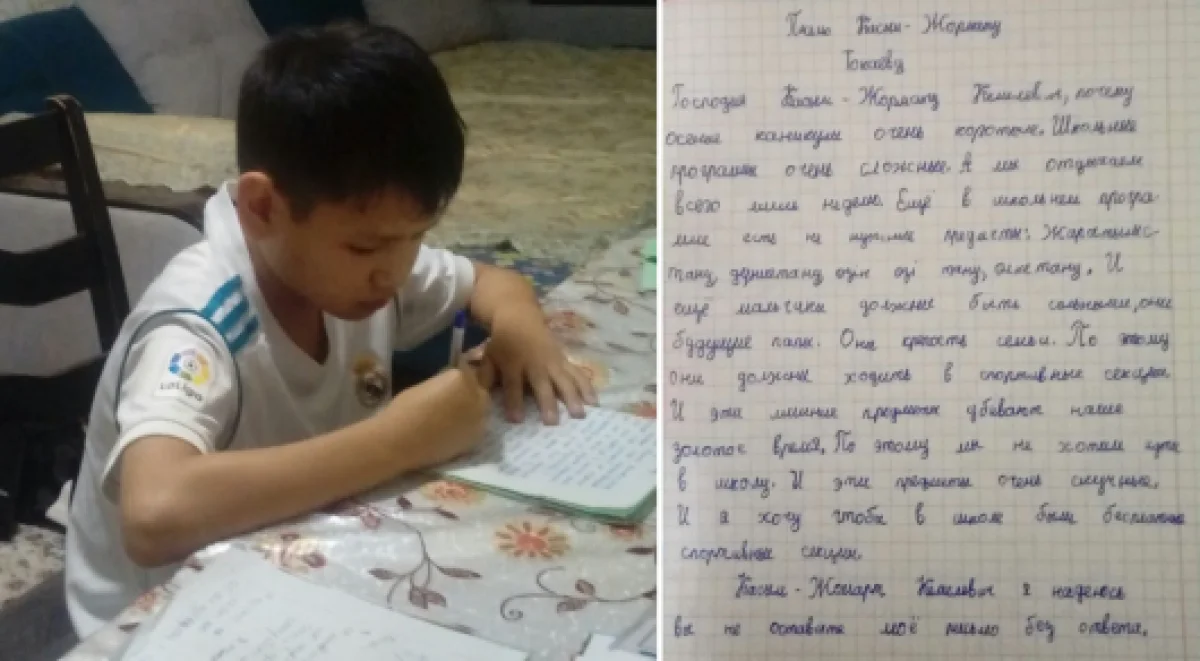 LaLiga
Касым-Жомарту
Токаеву
Господин Касым-Жомарт Кемелевич, почему
осение каникулы очень короткие. Школьные
программы очень сложные. А мы отдыхаем
всего лишь неделю. Ещё в школьном програ-
мме есть не нужные предметы: Жаратылыс-
тану, дуниетану, өзін өзі тану,
И
ещё мальчики должные быть сильными, они
будущие папы. Они крепость семьи. По этому
они должны ходить в спортивные секции
И эти лишные предметы убивают наше
золотое время. По этому мы не хотим идти
в школу. И эти предметы очень скучные.
И я хочу чтобы в школе были бесплатные
спортивные секции
Касым-Жомарт Кемелевич я надеюсь
вы не оставите моё письмо без ответа.